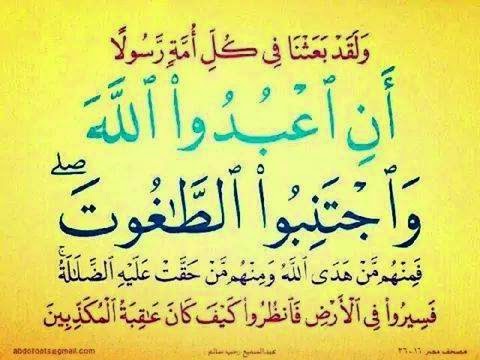 وَلَقَدْ بَعَثْنَا فِى كُلِّ أُمَّةٍ رَّسُولًا
أَنِ ٱعْبُدُوا۟ ٱللَّهَ
وَٱجْتَنِبُوا۟ ٱلطَّـٰغُوتَ ۖ
فَمِنْهُم مَّنْ هَدَى ٱللَّهُ وَمِنْهُم مَّنْ حَقَّتْ عَلَيْهِ ٱلضَّلَـٰلَةُ ۚ
فَسِيرُوا۟ فِى ٱلْأَرْضِ فَٱنظُرُوا۟ كَيْفَ كَانَ عَـٰقِبَةُ ٱلْمُكَذِّبِينَ
مصحف مصر ١٦-٣٦ عبدالسميع رجب سالم abdofonts@gmail.com